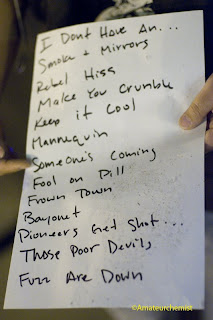 I Dont Have An...
Smoke + Mirrors
Rebel Hiss
Make You Crumble
Keep it Cool
Mannequin
Someone's Coming
Fool on Pill
Frown Town
Bayonet
Pioneers Get Shot...
Those Poor Devils
Fuzz Are Down
©Amateurchemist